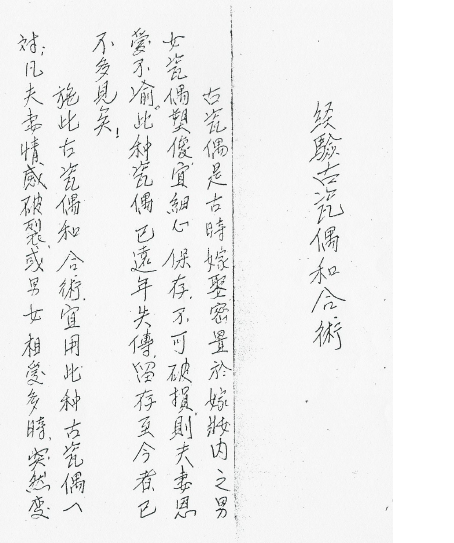 经驗古瓷偶和合術
古瓷偶是古時嫁娶密置於嫁妝内之男
女瓷偶塑像宜細心保存,不可破損,則夫妻恩
愛不渝,此種瓷偶已遠年失傳,留存至今者已
不多見矣!
施此古瓷偶和合術,宜用此种古瓷偶一
对;凡夫妻情感破裂,或男女相愛多時,突然变